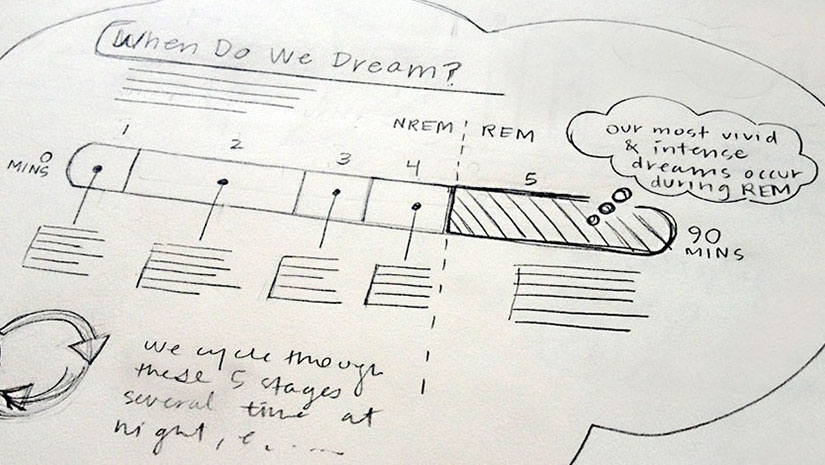 When Do We Dream?
NREM
REM
1
2
3
4
5
0
MINS
90
MINS
our most vivid
& intense
dreams occur
during REM
we cycle though
these 5 stages
several time at
night,